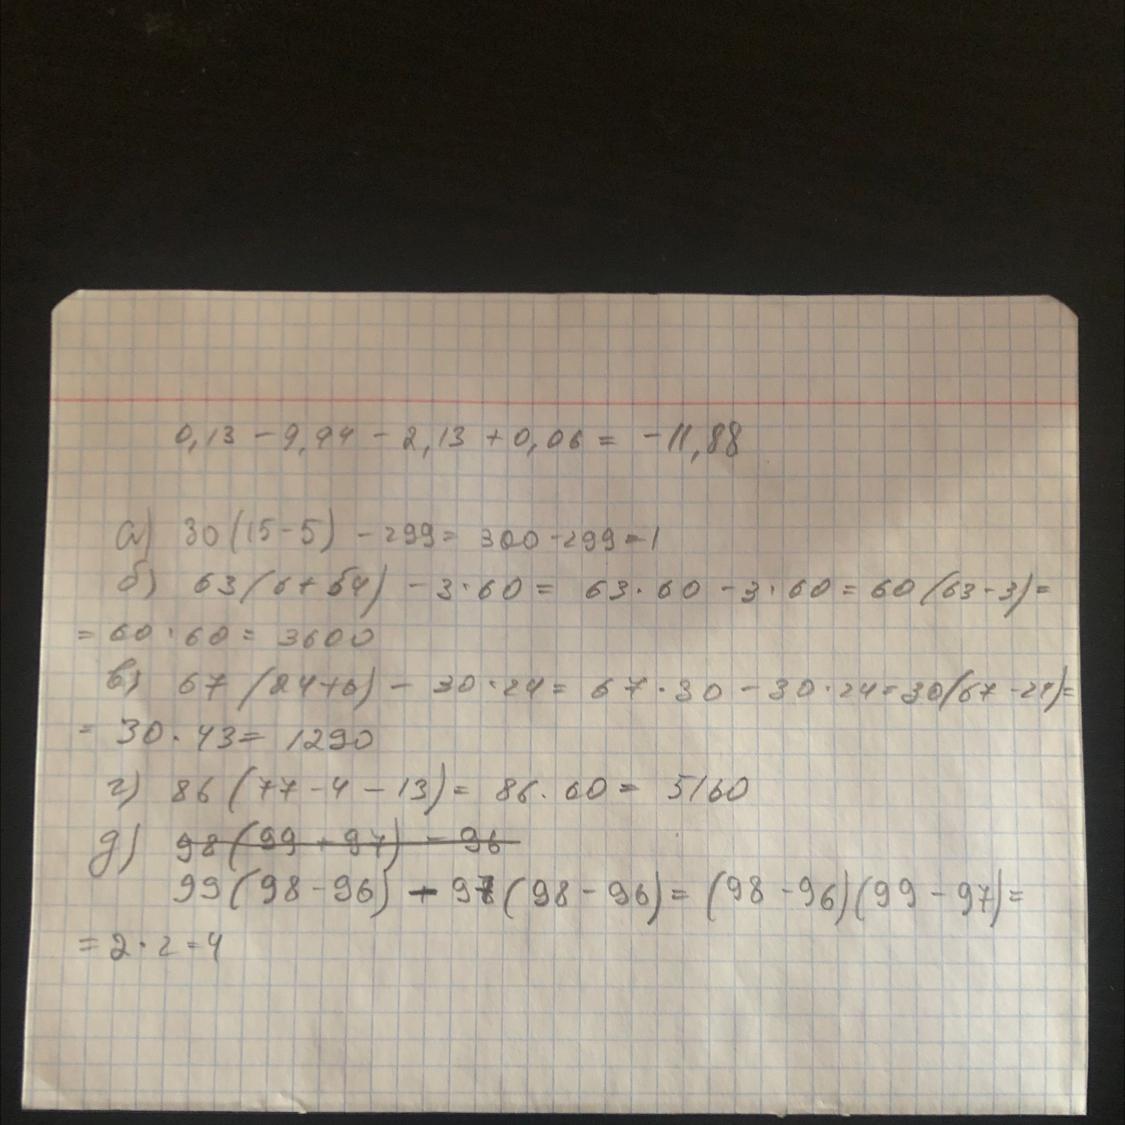 0,13 - 9,94 - 2,13 + 0,06 = -11,88
а) 30(15-5) - 299 = 300 - 299 = 1
б) 63(6+54) - 3·60 = 63·60 - 3·60 = 60(63-3) =
= 60·60 = 3600
в) 67(24+6) - 30·24 = 67·30 - 30·24 = 30(67-24) =
= 30·43 = 1290
г) 86(77-4-13) = 86·60 = 5160
д) 98(99+97) - 96
99(98-96) - 97(98-96) = (98-96)(99-97) =
= 2·2 = 4